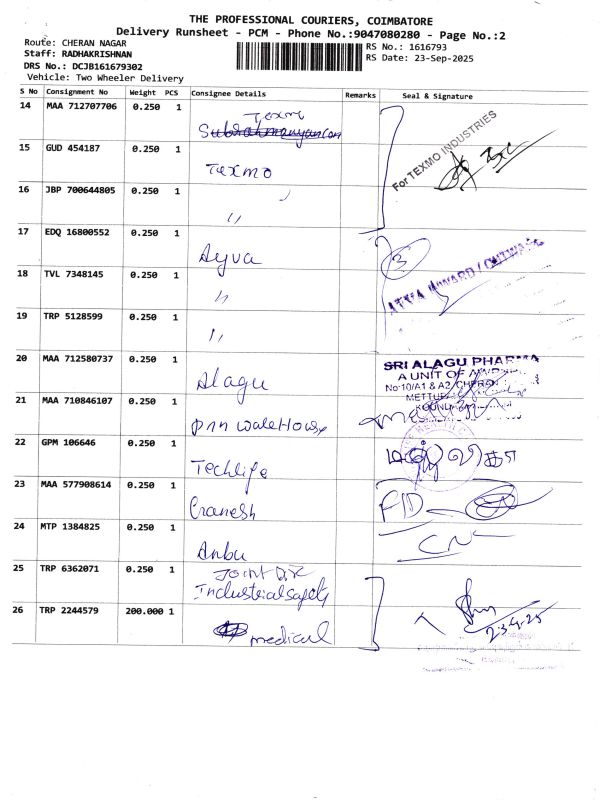 THE PROFESSIONAL COURIERS, COIMBATORE
Delivery Runsheet - PCM - Phone No.:9047080280 - Page No.:2
Route: CHERAN NAGAR
Staff: RADHAKRISHNAN
DRS No.: DCJB161679302
Vehicle: Two Wheeler Delivery
RS No.: 1616793
RS Date: 23-Sep-2025
S No Consignment No Weight PCS Consignee Details Remarks Seal & Signature
14 MAA 712707706 0.250 1 Texmo
For TEXMO INDUSTRIES
15 GUD 454187 0.250 1 Texmo
16 JBP 700644805 0.250 1 "
17 EDQ 16800552 0.250 1 Ayva 3
18 TVL 7348145 0.250 1 "
19 TRP 5128599 0.250 1 "
20 MAA 712580737 0.250 1 Alagu
SRI ALAGU PHARMA
A UNIT OF
No·10/A1 & A2, CHERAN
21 MAA 710846107 0.250 1
22 GPM 106646 0.250 1 Techlife
23 MAA 577908614 0.250 1 Ganesh
24 MTP 1384825 0.250 1 Anbu
25 TRP 6362071 0.250 1 Joint DR
Industrial safety
26 TRP 2244579 200.000 1 medical
23.9.25